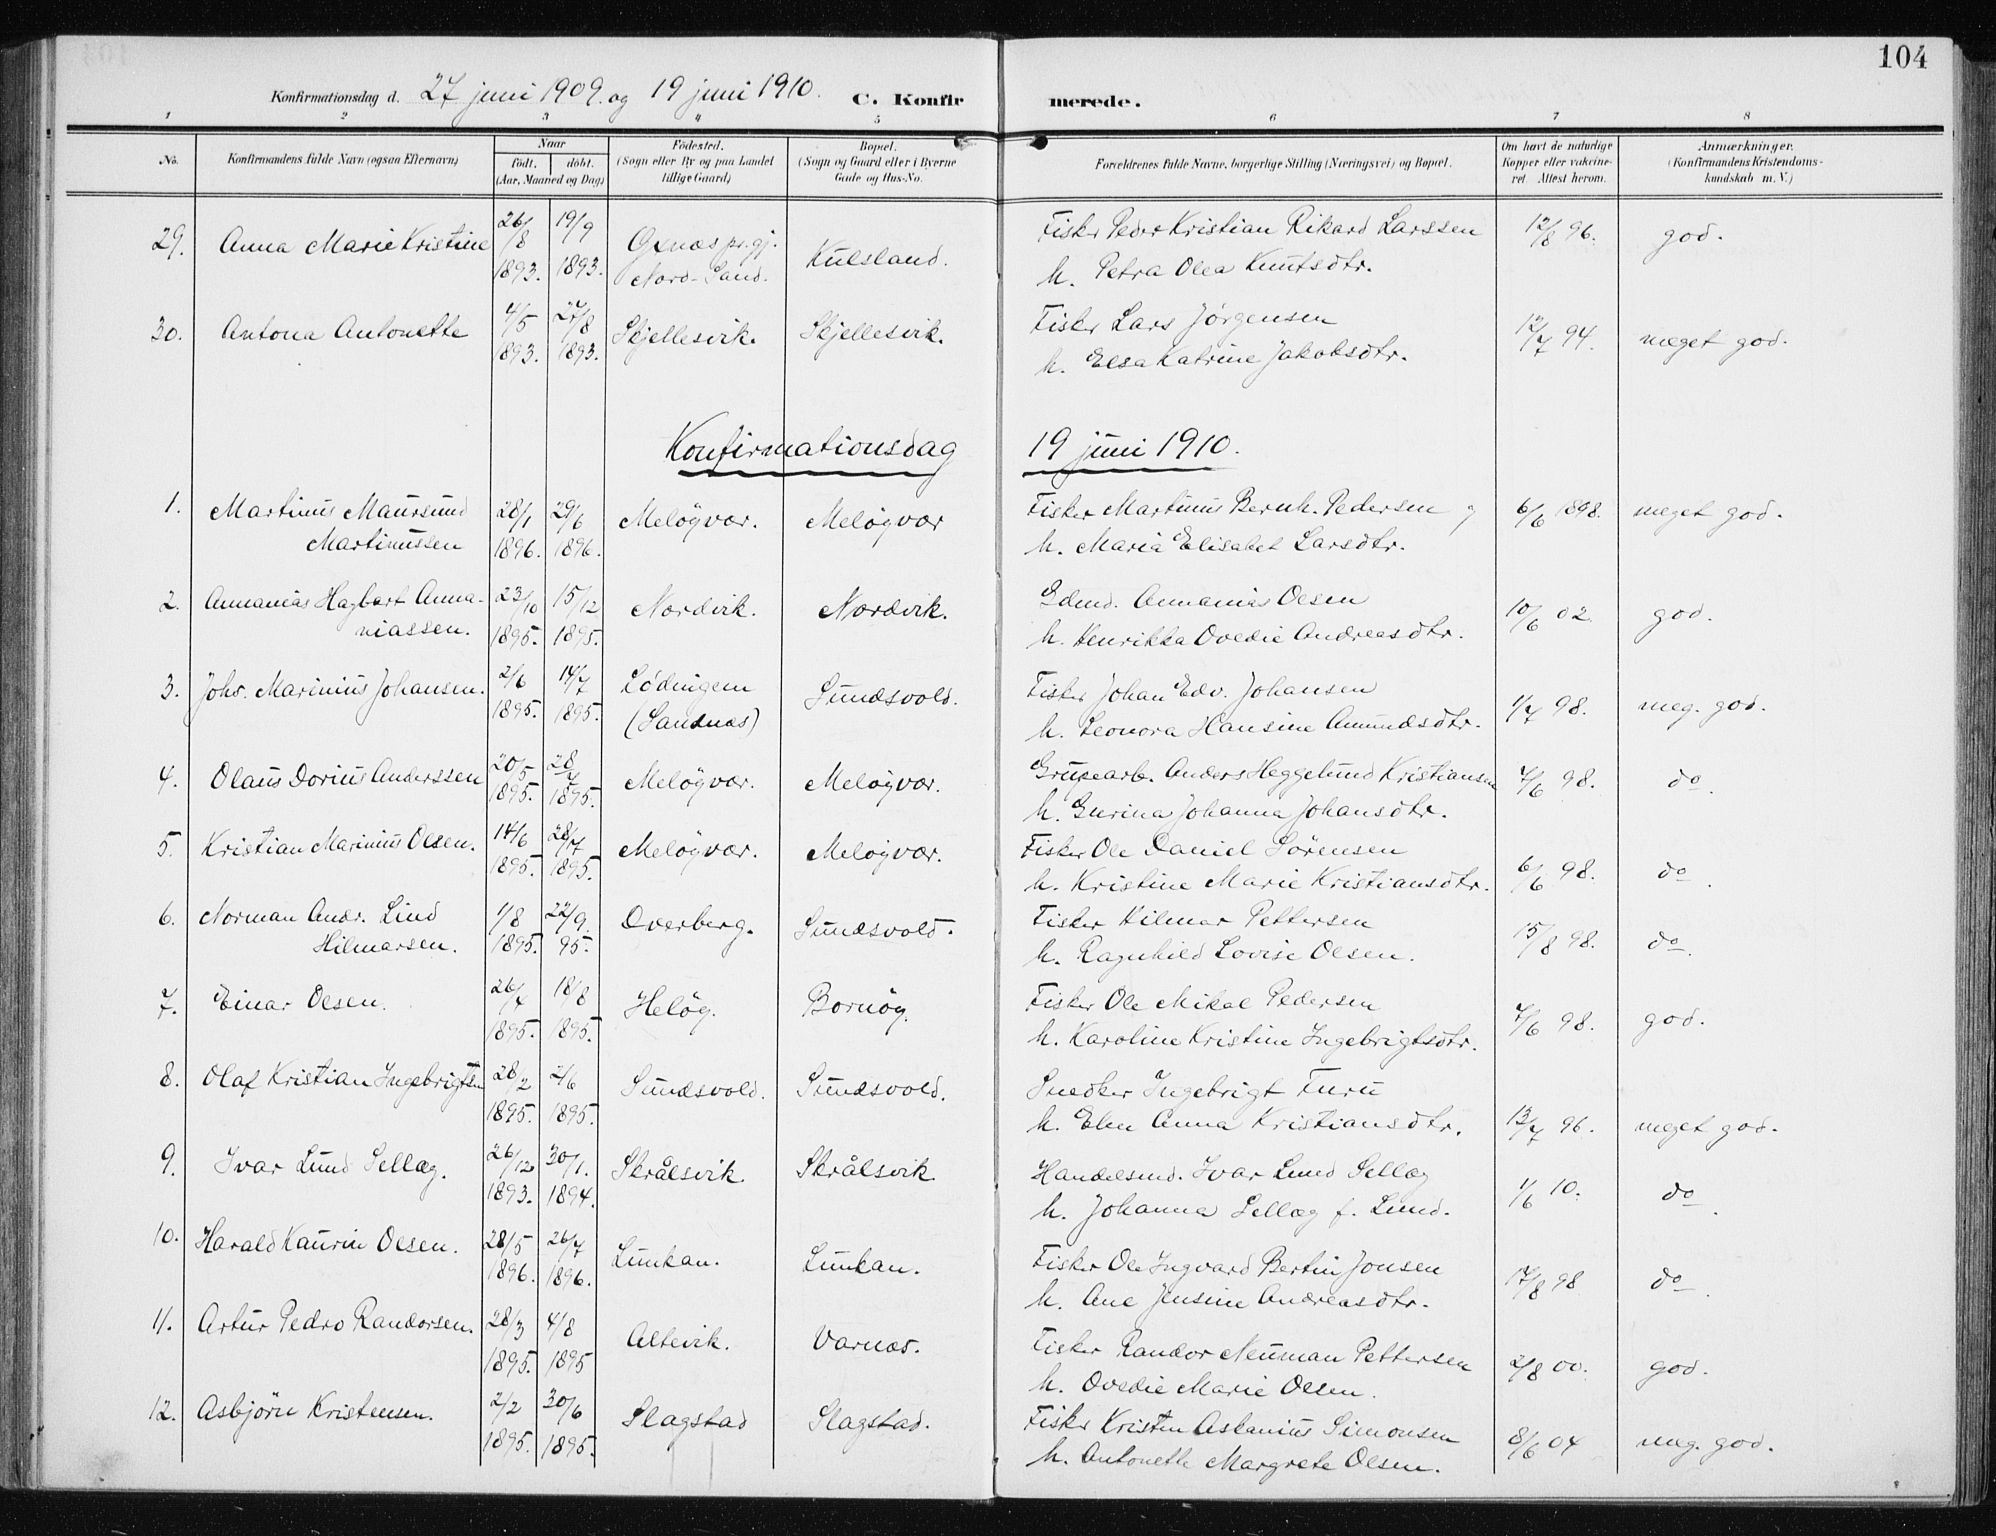 104
Konfirmationsdag d. 27 juni 1909. og 19 juni 1910. C. Konfirmerede.
1 2 3 4 5 6 7 8
No. Konfirmandens fulde Navn (ogsaa Efternavn) Naar født. døbt. (Aar, Maaned og Dag) Fødested. (Sogn eller By og paa Landet tillige Gaard) Bopæl. (Sogn og Gaard eller i Byerne Gade og Hus-No. Forældrenes fulde Navne, borgerlige Stilling (Næringsvei) og Bopæl. Om havt de naturlige Kopper eller vakcineret. Attest herom. Anmærkninger. (Konfirmandens Kristendomskundskab m. V.)
29. Anna Marie Kristine 26/8 1893. 19/9 1893. Øxnæs pr.gj. Nord-Sand. Kulsland. Fisker Peder Kristian Rikard Larssen 12/8 96. god.
h. Petra Olea Knutsdtr.
30. Antona Antonette 4/5 1893. 27/8 1893. Skjellesvik. Skjellesvik. Fisker Lars Jørgensen 12/7 94. meget god.
h. Elsa Katrine Jakobsdtr.
Konfirmationsdag 19 juni 1910.
1. Martinus Maursund Martinussen 28/1 1896. 29/6 1896. Meløyvær. Meløyvær Fisker Martinus Bernh. Pedersen og 6/6 1898. meget god.
h. Maria Elisabet Larsdtr.
2. Annanias Hagbart Annaniassen. 23/10 1895. 15/12 1895. Nordvik. Nordvik. Gdmd. Annanias Olsen 10/6 02. god.
h. Henrikka Ovedie Andreasdtr.
3. Johs. Marinius Johansen. 2/6 1895. 14/7 1895. Lødingen (Sandnes) Sundsvold. Fisker Johan Edv. Johansen 1/7 98. meg. god.
h. Leonora Hansine Amundsdtr.
4. Olaus Dorius Anderssen 20/5 1895. 28/7 1895. Meløyvær. Meløyvær. Grubearb. Anders Heggelund Kristiansen 7/6 98. do.
h. Gurina Johanna Johansdtr.
5. Kristian Marinius Olsen. 14/6 1895. 28/7 1895. Meløyvær. Meløyvær. Fisker Ole Daniel Sørensen 6/6 98. do.
h. Kristine Marie Kristiansdtr.
6. Norman Andr. Lind Hilmarsen. 1/8 1895. 22/9 95. Dverberg. Sundsvold. Fisker Hilmar Pettersen 15/8 98. do.
h. Ragnhild Lovise Olsen.
7. Einar Olsen. 26/4 1895. 18/8 1895. Heløy. Bornøy. Fisker Ole Mikal Pedersen 7/6 98. god.
h. Karoline Kristine Ingebrigtsdtr.
8. Olaf Kristian Ingebrigtsen 28/2 1895. 2/6 1895. Sundsvold. Sundsvold. Snedker Ingebrigt Furu 13/7 96. meget god.
h. Elen Anna Kristiansdtr.
9. Ivar Lund Sellæg. 26/12 1893. 30/1. 1894. Skrålsvik. Skrålsvik. Handelsmd. Ivar Lund Sellæg 1/6 10. do.
h. Johanna Sellæg f. Lund.
10. Harald Kaurin Olsen. 28/5 1896. 26/7 1896. Lunkan. Lunkan. Fisker Ole Ingvard Bertin Jonsen 17/8 98 do.
h. Ane Jensine Andreasdtr.
11. Artur Pedro Randorsen. 28/3 1895. 4/8 1895 Altevik. Varnæs. Fisker Randor Neuman Pettersen 2/8 00. god.
h. Ovedie Marie Olsen.
12. Asbjørn Kristensen. 2/2 1895. 30/6 1895. Slagstad Slagstad. Fisker Kristen Askanius Simonsen 8/6 04 meg. god.
h. Antonette Margrete Olsen.